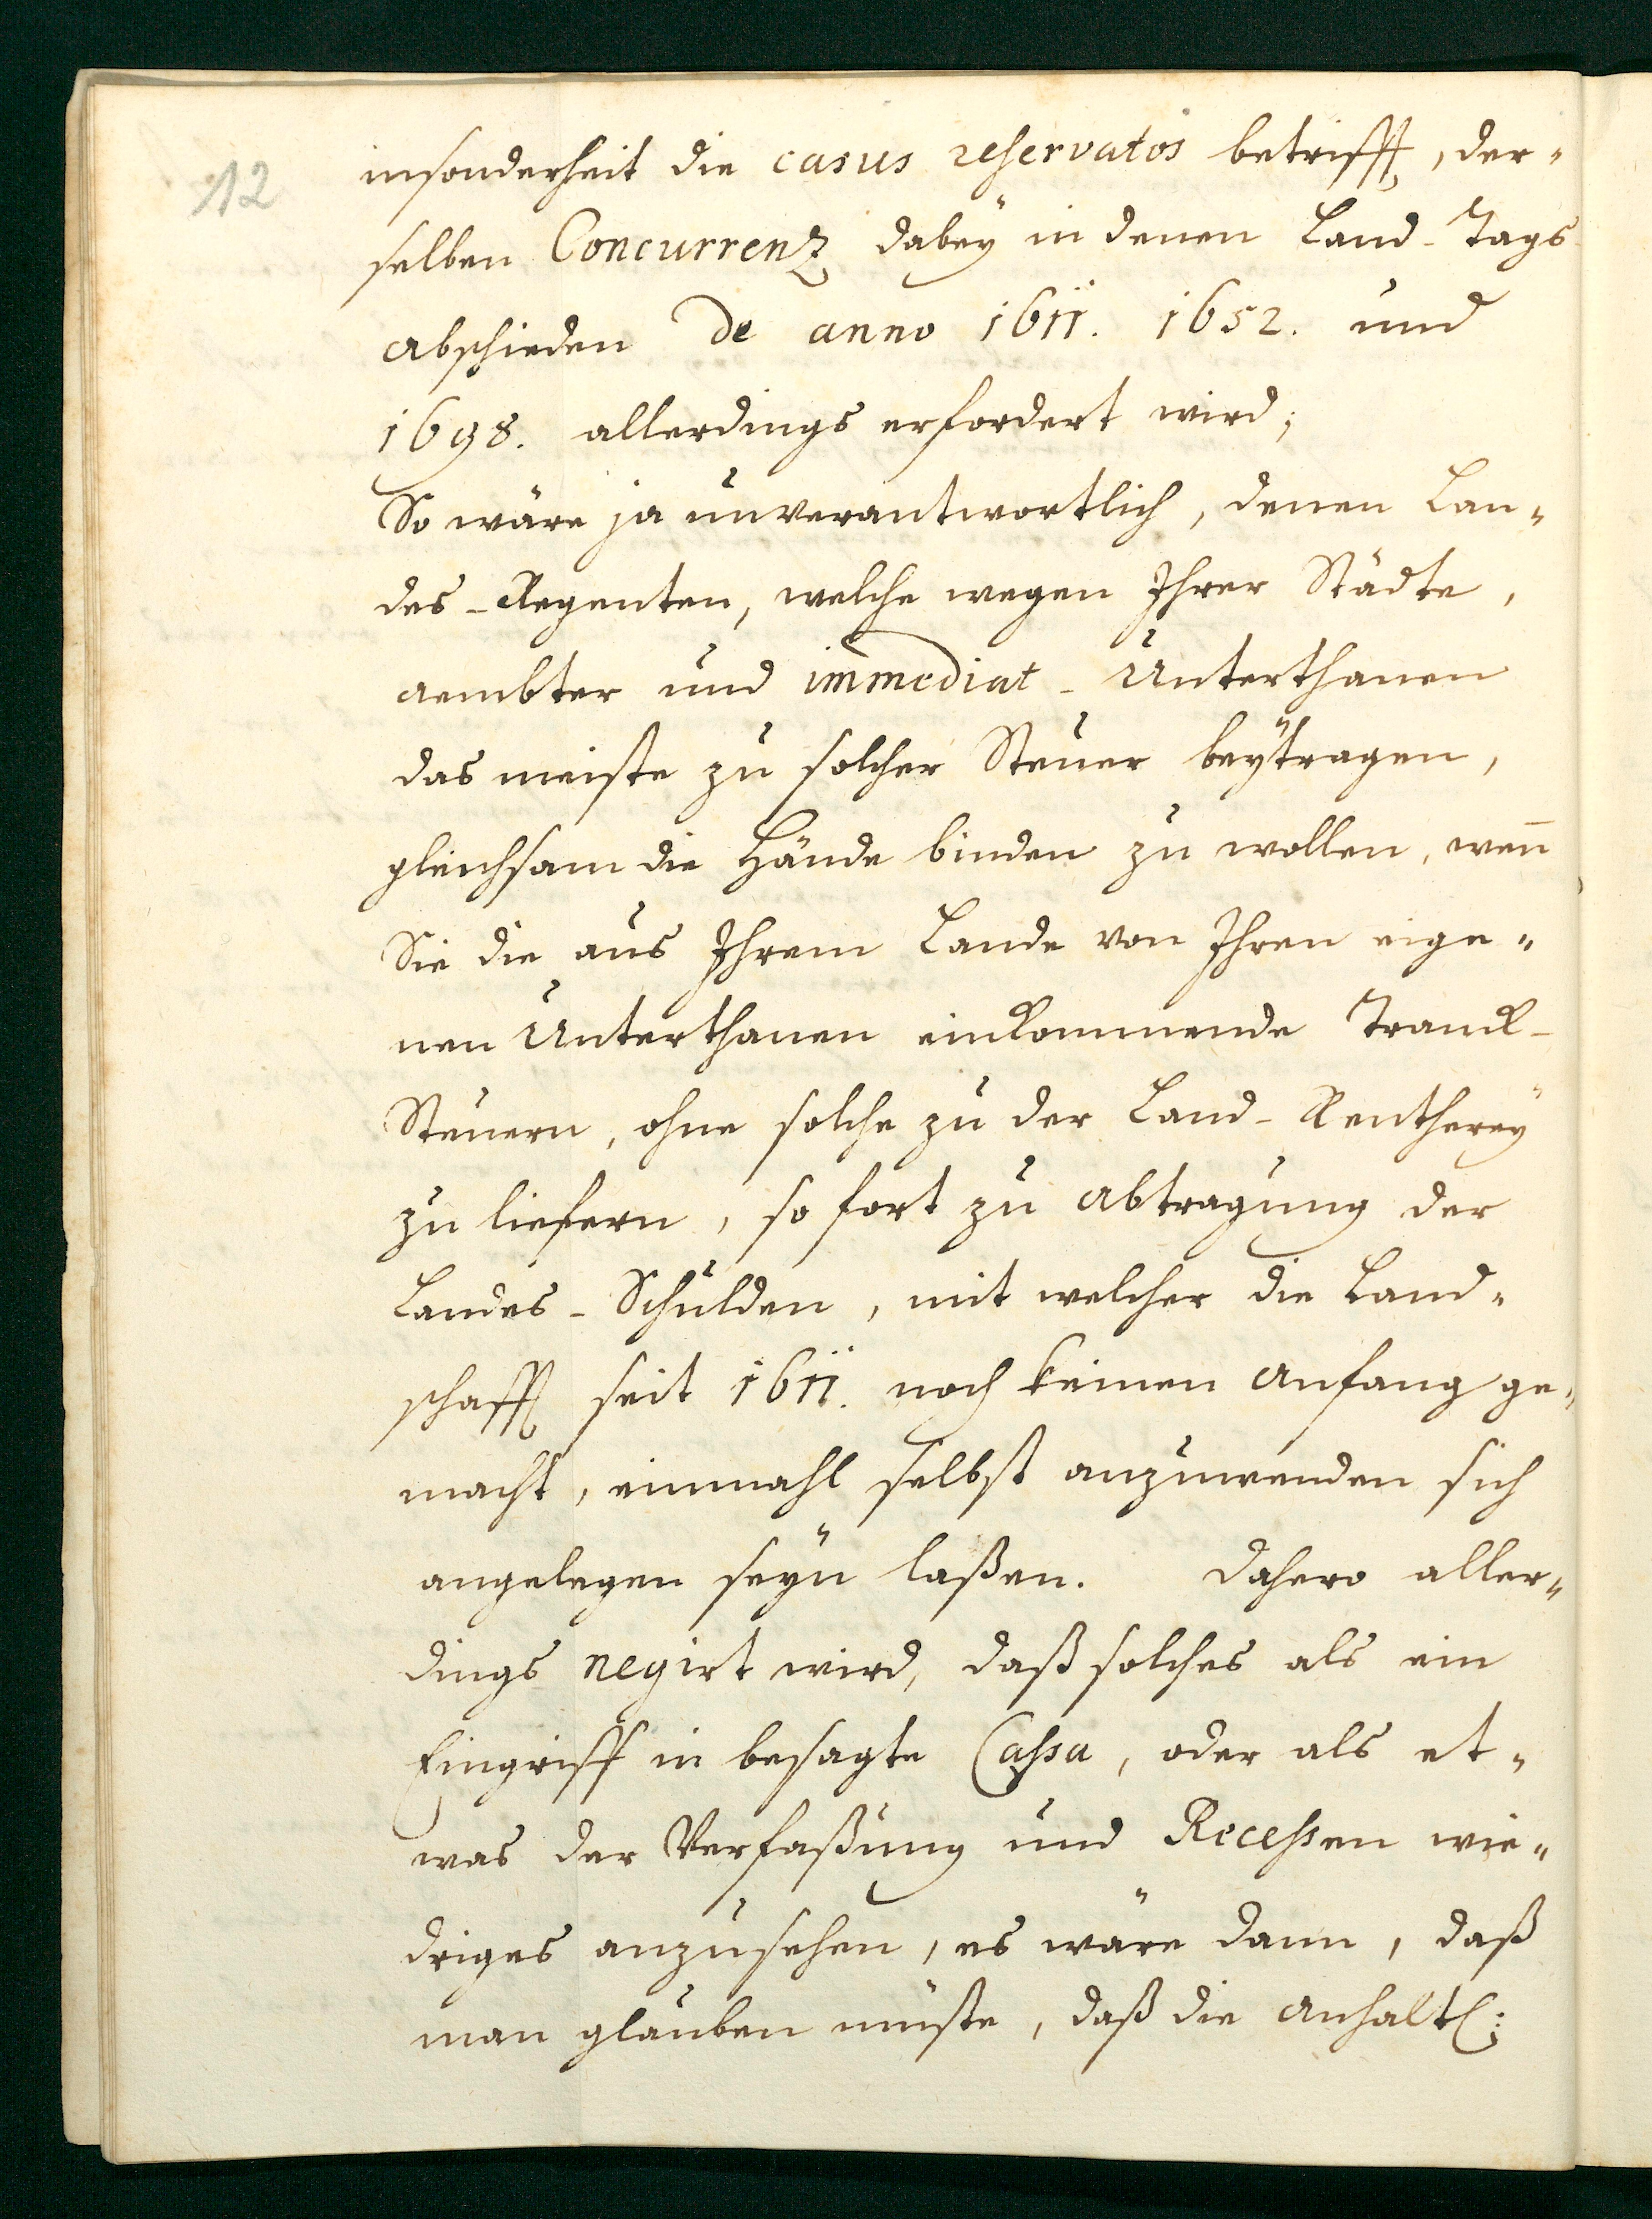 12
insonderheit die casus reservatos betrifft, der-
selben Concurrenz dabeÿ in denen Land-Tags
abschieden de anno 1611. 1652. und
1698. allerdings erfordert wird;
So wäre ja unverantwortlich, denen Lan-
des-Regenten, welche wegen Ihrer Städte,
aembter und immediat-Unterthanen
das meiste zu solcher Steuer beÿtragen,
gleichsam die Hände binden zu wollen, wen̄
Sie die aus Ihrem Lande von Ihren eige-
nen Unterthanen einkommende Tranck-
Steuern, ohne solche zu der Land-Rentherey
zu liefern, so fort zu abtragung der
Landes-Schulden, mit welcher die Land-
schafft seit 1611. noch keinen anfang ge-
macht, einmahl selbst anzuwenden sich
angelegen seÿn laßen. Dahero aller-
dings negirt wird, daß solches als ein
Eingriff in besagte Cassa, oder als et-
was der Verfaßung und Recessen wie-
driges anzusehen, es wäre dann, daß
man glauben müste, daß die anhaltl: